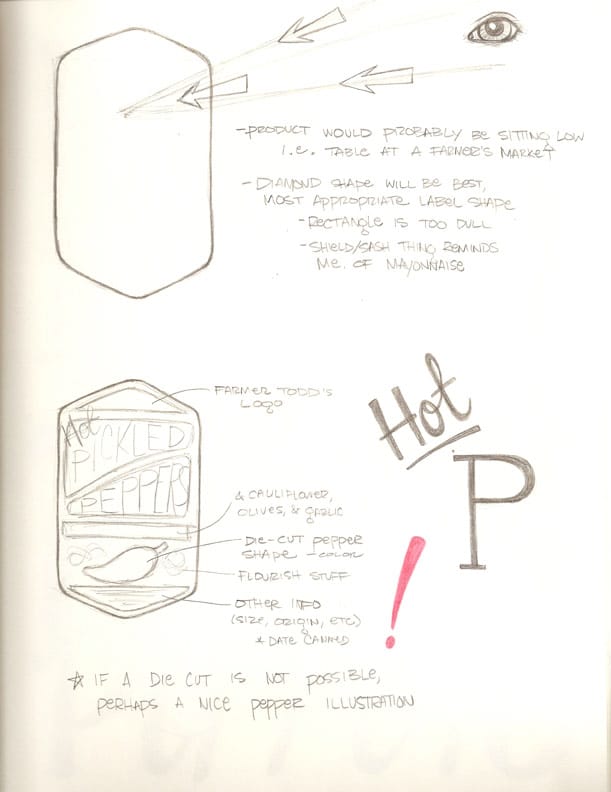 -PRODUCT WOULD PROBABLY BE SITTING LOW
I.E. TABLE AT A FARMER'S MARKET
-DIAMOND SHAPE WILL BE BEST,
MOST APPROPRIATE LABEL SHAPE
-RECTANGLE IS TOO DULL
-SHIELD/SASH THING REMINDS
ME. OF MAYONNAISE
FARMER TODD'S
LOGO
Hot
PICKLED
PEPPERS
& CAULIFLOWER,
OLIVES, & GARLIC
DIE-CUT PEPPER
SHAPE -COLOR
FLOURISH STUFF
OTHER INFO
(SIZE, ORIGIN, ETC)
* DATE CANNED
Hot
P
!
☆ IF A DIE CUT IS NOT POSSIBLE,
PERHAPS A NICE PEPPER ILLUSTRATION